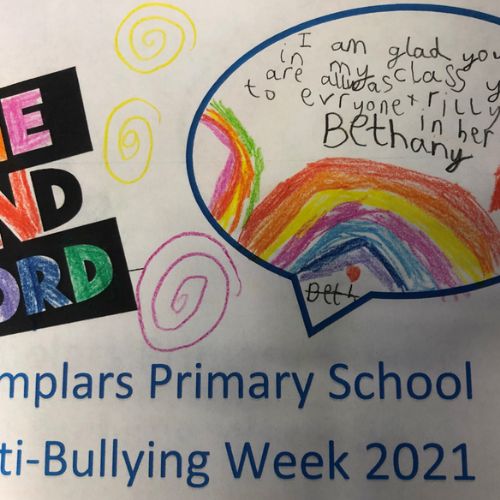 NE
ND
ORD
I am glad you
in my class y
are allwas
to evryone + rilly
in her
Bethany
Beth
mplars Primary School
ti-Bullying Week 2021